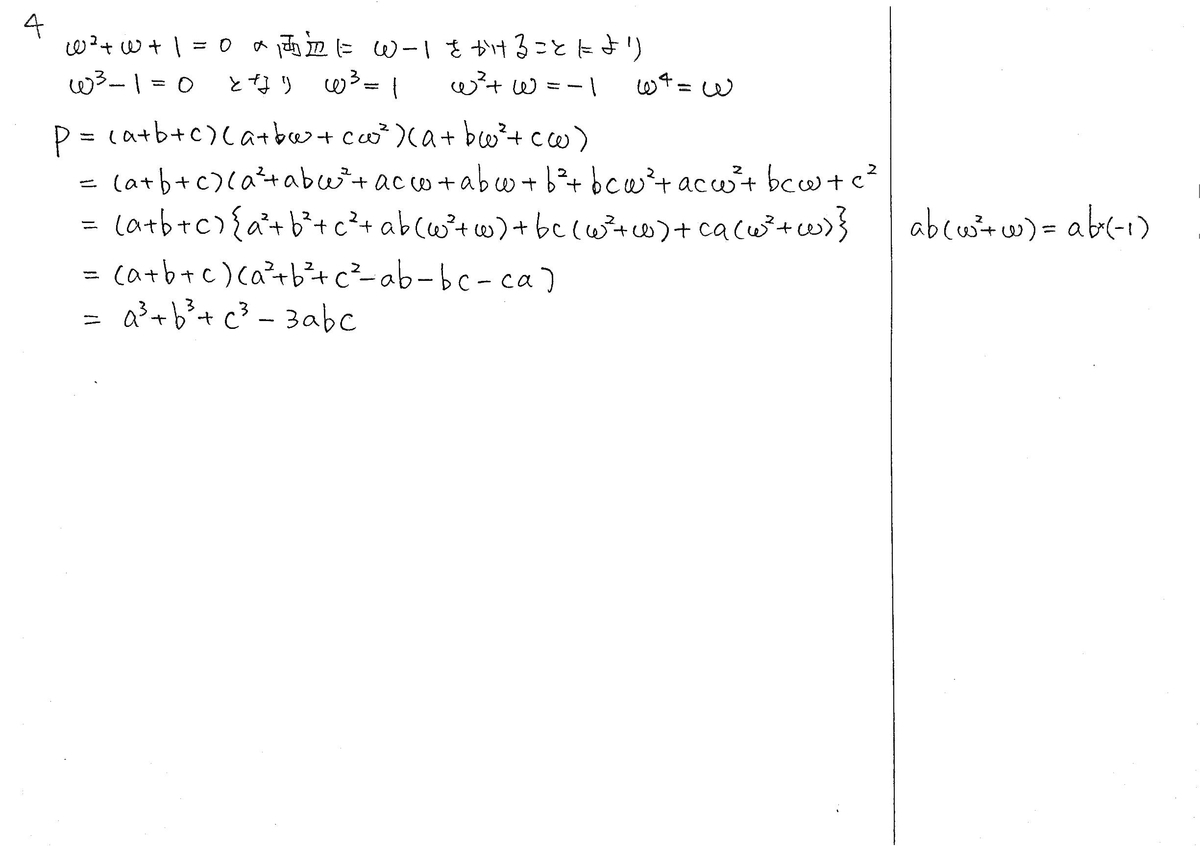 4
ω²+ω+1=0 の両辺に ω-1 をかけることにより
ω³-1=0 となり ω³=1 ω²+ω=-1 ω⁴=ω
P=(a+b+c)(a+bω+cω²)(a+bω²+cω)
=(a+b+c)(a²+abω²+acω+abω+b²+bcω²+acω²+bcω+c²
=(a+b+c){a²+b²+c²+ab(ω²+ω)+bc(ω²+ω)+ca(ω²+ω)}
=(a+b+c)(a²+b²+c²-ab-bc-ca)
=a³+b³+c³-3abc
ab(ω²+ω)=ab×(-1)